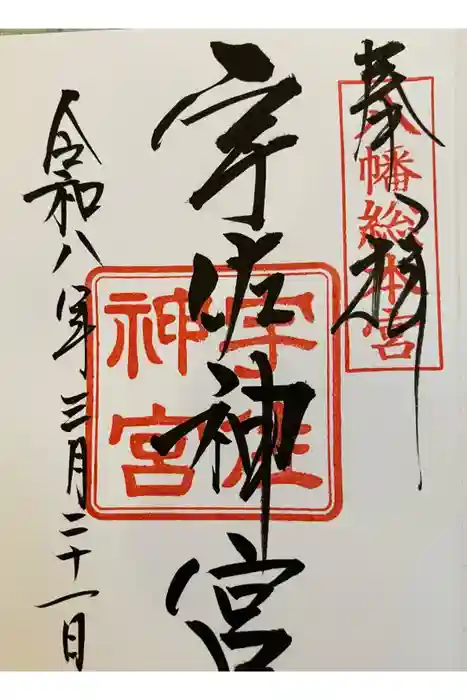 奉拝
八幡総本宮
宇佐神宮
宇佐神宮
令和八年三月二十一日